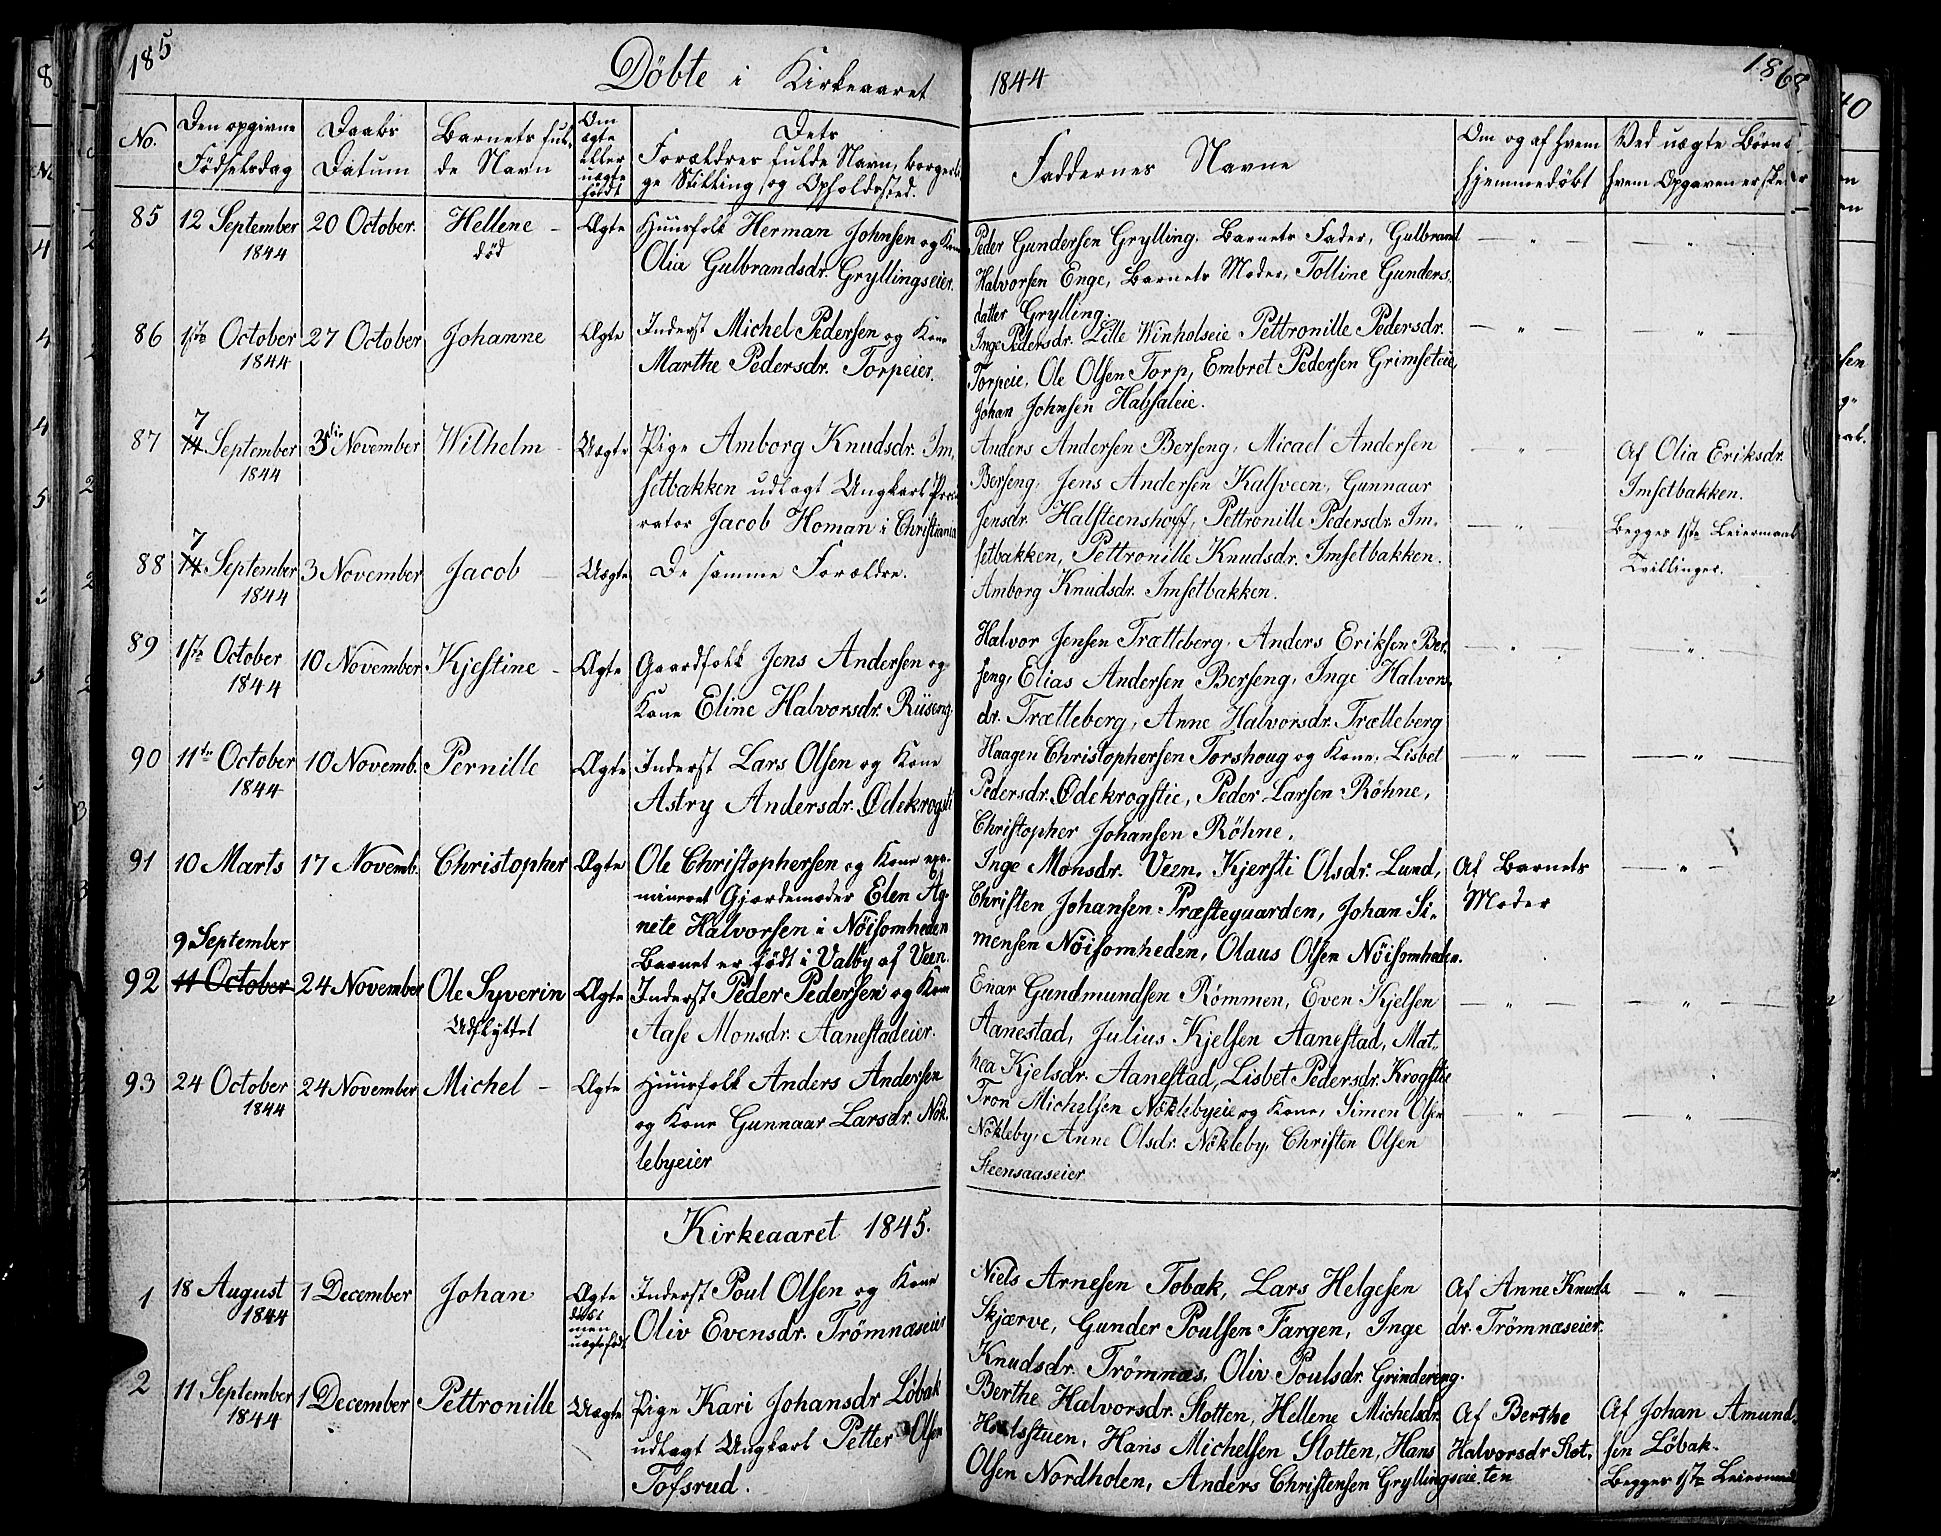 185
Döbte i Kirkeaaret 1844
186
No.
Den opgivne Födselsdag
Daabs Datum
Barnets fulde Navn
Om ægte eller uægte födt
Dets Forældres fulde Navn, borgerlige Stilling og Opholdssted.
Faddernes Navne
Om og af hvem hjemmedöbt
Ved uægte Börn
hvem Opgaven er skeet
85 12 September 1844 20 October. Hellene - död Ægte
Huusfolk Herman Johnsen og Kone
Olia Gulbrandsdr. Gryllingseier.
Peder Gundersen Grylling, Barnets Fader, Gulbrand
Halvorsen Enge, Barnets Moder, Tolline Gunders,
datter Grylling.
86 1ste October 1844 27 October Johanne Ægte
Inderst Michel Pedersen og Kone
Marthe Pedersdr. Torpeier.
Inge Pedersdr. Lille Winholseie Pettronille Pedersdr.
Torpeie, Ole Olsen Torp, Embret Pedersen Grimseteie,
Johan Johnsen Halsaleie.
87 7 14 September 1844 3die November Wilhelm - Uægte
Pige Amborg Knudsdr. Im,
setbakken udlagt Ungkarl Procu
rator Jacob Homan i Christiania
Anders Andersen Berseng, Micael Andersen
Berseng, Jens Andersen Kalsveen, Gunnaar
Jensdr. Halsteenshoff, Pettronille Pedersdr. Im,
setbakken, Pettronille Knudsdr. Imsetbakken.
Amborg Knudsdr. Imsetbakken.
Af Olia Eriksdr.
Imsetbakken.
Begges 1ste Leiermaal
Tvillinger.
88 7 14 September 1844 3 November Jacob - Uægte
De samme Forældre.
89 1ste October 1844 10 November Kjestine - Ægte
Gaardfolk Jens Andersen og
Kone Eline Halvorsdr. Rüseng.
Halvor Jensen Trætteberg, Anders Eriksen Ber,
seng, Elias Andersen Berseng, Inge Halvors,
dr. Trætteberg, Anne Halvorsdr. Trætteberg
90 11te October 1844 10 Novemb. Pernille Ægte
Inderst Lars Olsen og Kone
Astry Andersdr. Ödekrogsti
Haagen Christophersen Torshoug og Kone, Lisbet
Pedersdr. Ödekrogstie, Peder Larsen Röhne,
Christopher Johansen Röhne.
91 10 Marts 17 Novemb. Christopher Ægte
Ole Christophersen og Kone exa-
mineret Gjordemoder Elen Ag,
nete Halvorsen i Nöisomheden
Barnet er födt i Valby af Veen.
Inge Monsdr. Veen, Kjersti Olsdr. Lund,
Christen Johansen Præsteguarden, Johan Si,
mensen Nöisomheden, Olaus Olsen Nöisomheden.
Af Barnets
Moder
92 9 September 11 October 24 November Ole Syverin Udflyttet Ægte
Inderst Peder Pedersen og Kone
Aase Monsdr. Aanestadeier.
Enar Gundmundsen Römmen, Even Kjelsen
Aanestad, Julius Kjelsen Aanestad, Mat,
hea Kjelsdr. Aanestad, Lisbet Pedersdr. Krogstie
93 24 October 1844 24 November Michel - Ægte
Huusfolk Anders Andersen
og Kone Gunnaar Larsdr. Nök,
lebyeier
Tron Michelsen Nöklebyeie og Kone, Simen Olsen
Nökleby, Anne Olsdr. Nökleby, Christen Olsen
Steensaaseier
Kirkeaaret 1845.
1 18 August 1844 1 December Johan Ægte
men uægtefödt
Inderst Poul Olsen og Kone
Oliv Evensdr. Trömnæseier
Niels Arnesen Tobæk, Lars Helgesen
Skjærve, Gunder Poulsen Fargen, Inge
Knudsdr. Trömnæs, Oliv Poulsdr. Grindereng.
Af Anne Knuds
dr. Trömnæseier.
2 11 September 1844 1 December Pettronille Uægte
Pige Kari Johansdr Löbak
udlagt Ungkarl Petter Olsen
Tofsrud.
Berthe Halvorsdr. Slotten, Hellene Michelsdr.
Hælsstuen, Hans Michelsen Slotten, Hans
Olsen Nordholen, Anders Christensen Gryllingseie.
Af Berthe
Halvorsdr Slot,
ten
Af Johan Amund,
sen Löbak.
Begges 1ste Leiermaal